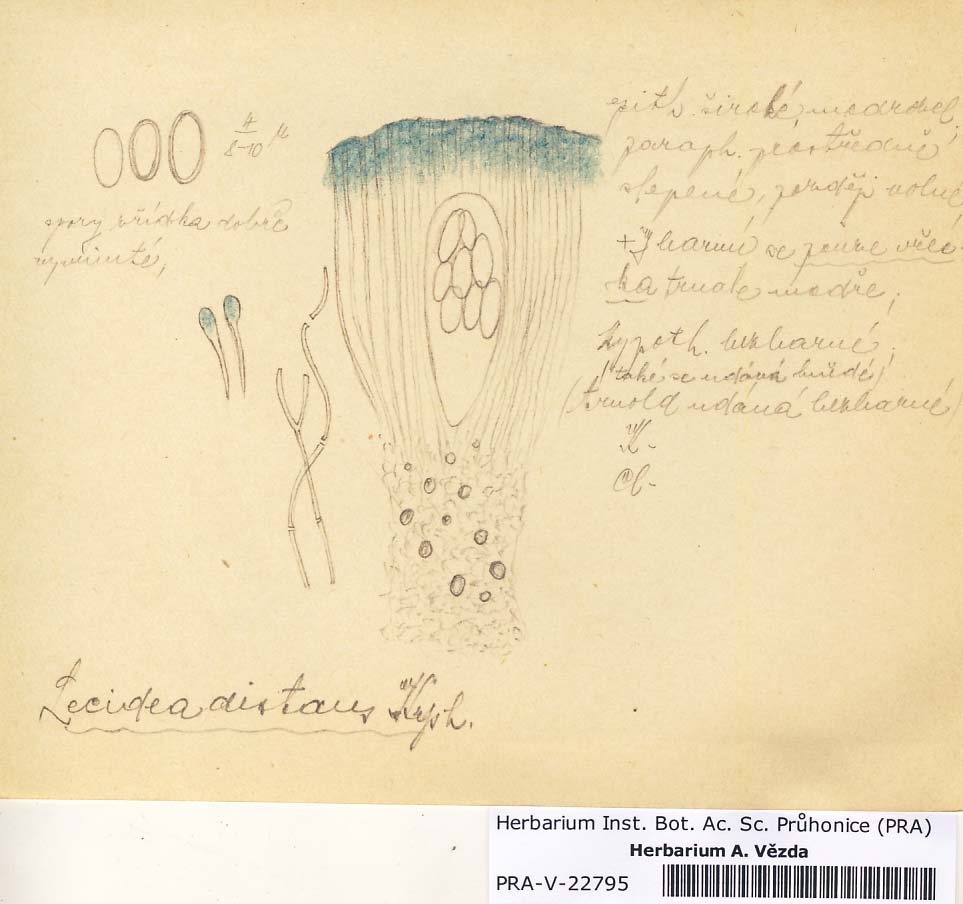 4
8-10 μ
spory zřídka dobře
vyvinuté,
epith. široké, modrozel.
paraph. prostředně
slepené, později volné
+ J barví se pouze vřec-
ka trvale modře,
hypoth. bezbarvé,
(také se udává hnědé)
(Arnold udáná bezbarvé)
K-
Cl-
Lecidea distans Krph.
Herbarium Inst. Bot. Ac. Sc. Průhonice (PRA)
Herbarium A. Vězda
PRA-V-22795